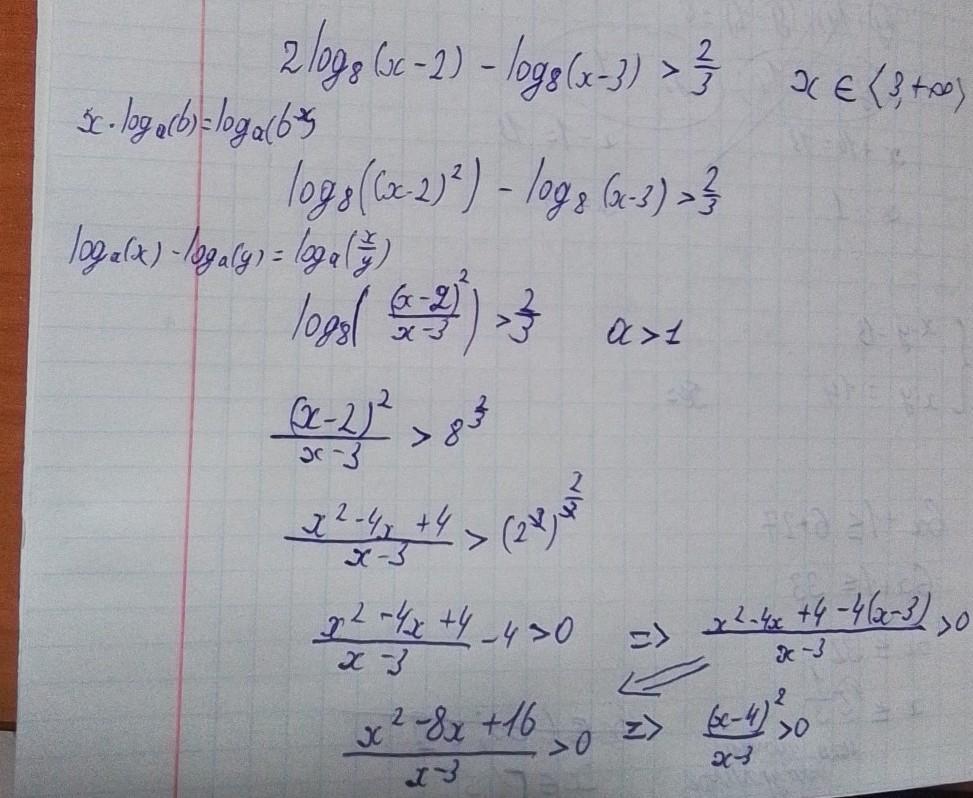 2log₈(x-2) - log₈(x-3) > 2/3    x ∈ ⟨3,+∞)
x·logₐ(b)=logₐ(bˣ)
log₈((x-2)²) - log₈(x-3) > 2/3
logₐ(x) - logₐ(y) = logₐ(x/y)
log₈((x-2)²/(x-3)) > 2/3    a>1
(x-2)²/(x-3) > 8^(2/3)
(x²-4x+4)/(x-3) > (2^3)^(2/3)
(x²-4x+4)/(x-3) - 4 > 0 => (x²-4x+4-4(x-3))/(x-3) > 0
(x²-8x+16)/(x-3) > 0 => (x-4)²/(x-3) > 0